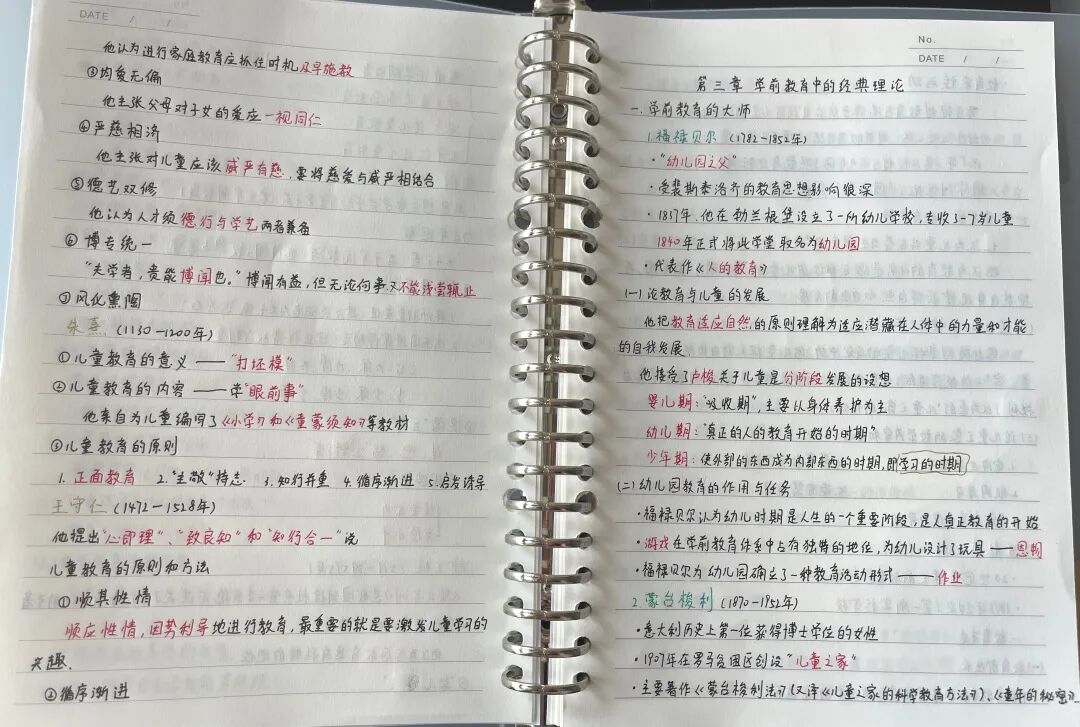 DATE / /
他认为进行家庭教育应抓住时机及早施教
③均爱无偏
他主张父母对子女的爱应一视同仁
④严慈相济
他主张对儿童应该威严有慈，要将慈爱与威严相结合
⑤德艺双修
他认为人才须德行与学艺两者兼备
⑥博专统一
"夫学者，贵能博闻也。"博闻有益，但无论何事又不能浅尝辄止
⑦风化熏陶
朱熹（1130—1200年）
①儿童教育的意义——"打坯模"
②儿童教育的内容——学"眼前事"
他亲自为儿童编写了《小学》和《童蒙须知》等教材
③儿童教育的原则
1.正面教育 2."主敬"持志 3.知行并重 4.循序渐进 5.启发诱导
王守仁（1472—1528年）
他提出"心即理"、"致良知"和"知行合一"说
儿童教育的原则和方法
①顺其性情
顺应性情，因势利导地进行教育，最重要的就是要激发儿童学习的
兴趣.
②循序渐进
No.
DATE / /
第三章 学前教育中的经典理论
一.学前教育的大师
1.福禄贝尔（1782—1852年）
·"幼儿园之父"
·受裴斯泰洛齐的教育思想影响很深
·1837年，他在勃兰根堡设立了一所幼儿学校，专收3-7岁儿童
1840年正式将此学堂取名为幼儿园
·代表作《人的教育》
(一)论教育与儿童的发展
他把教育适应自然的原则理解为适应潜藏在人体中的力量和才能
的自我发展.
他接受了卢梭关于儿童是分阶段发展的设想
婴儿期："吸收期"，主要以身体养护为主
幼儿期："真正的人的教育开始的时期"
少年期：使外部的东西成为内部东西的时期，即学习的时期
(二)幼儿园教育的作用与任务
·福禄贝尔认为幼儿时期是人生的一个重要阶段，是人真正教育的开始
·游戏在学前教育体系中占有独特的地位，为幼儿设计了玩具——恩物
·福禄贝尔为幼儿园确立了一种教育活动形式——作业
2.蒙台梭利（1870—1952年）
·意大利历史上第一位获得博士学位的女性
·1907年在罗马贫困区创设"儿童之家"
·主要著作《蒙台梭利法》（又译《儿童之家的科学教育方法》）、《童年的秘密》